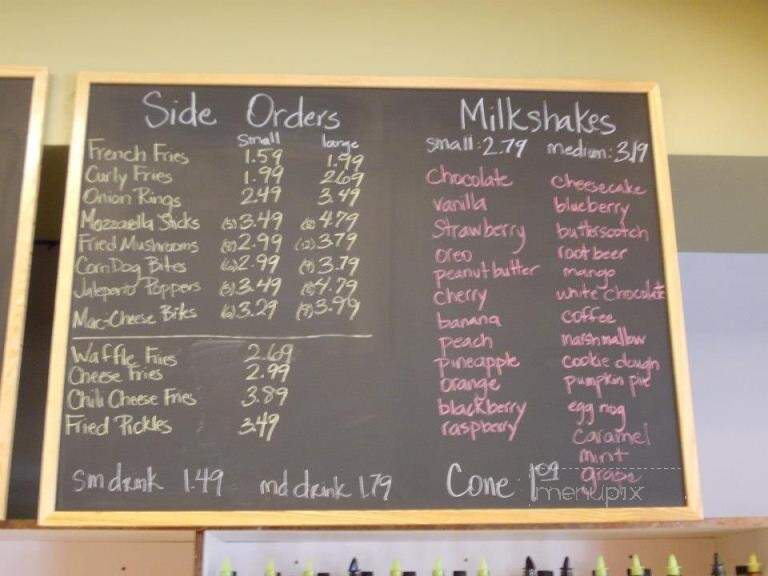 Side Orders
small large
French Fries 1.59 1.99
Curly Fries 1.99 2.69
Onion Rings 2.49 3.49
Mozzarella Sticks (5) 3.49 (8) 4.79
Fried Mushrooms (8) 2.99 (12) 3.79
Corn Dog Bites (6) 2.99 (9) 3.79
Jalepeno Poppers (5) 3.49 (8) 4.79
Mac-Cheese Bites (6) 3.29 (9) 3.99
Waffle Fries 2.69
Cheese Fries 2.99
Chili Cheese Fries 3.89
Fried Pickles 3.49
sm drink 1.49 md drink 1.79
Milkshakes
small: 2.79 medium: 3.19
Chocolate cheesecake
vanilla blueberry
Strawberry butterscotch
oreo root beer
peanut butter mango
cherry white chocolate
banana coffee
peach marshmallow
pineapple cookie dough
orange pumpkin pie
blackberry egg nog
raspberry caramel
mint
grape
Cone 1.09
menupix